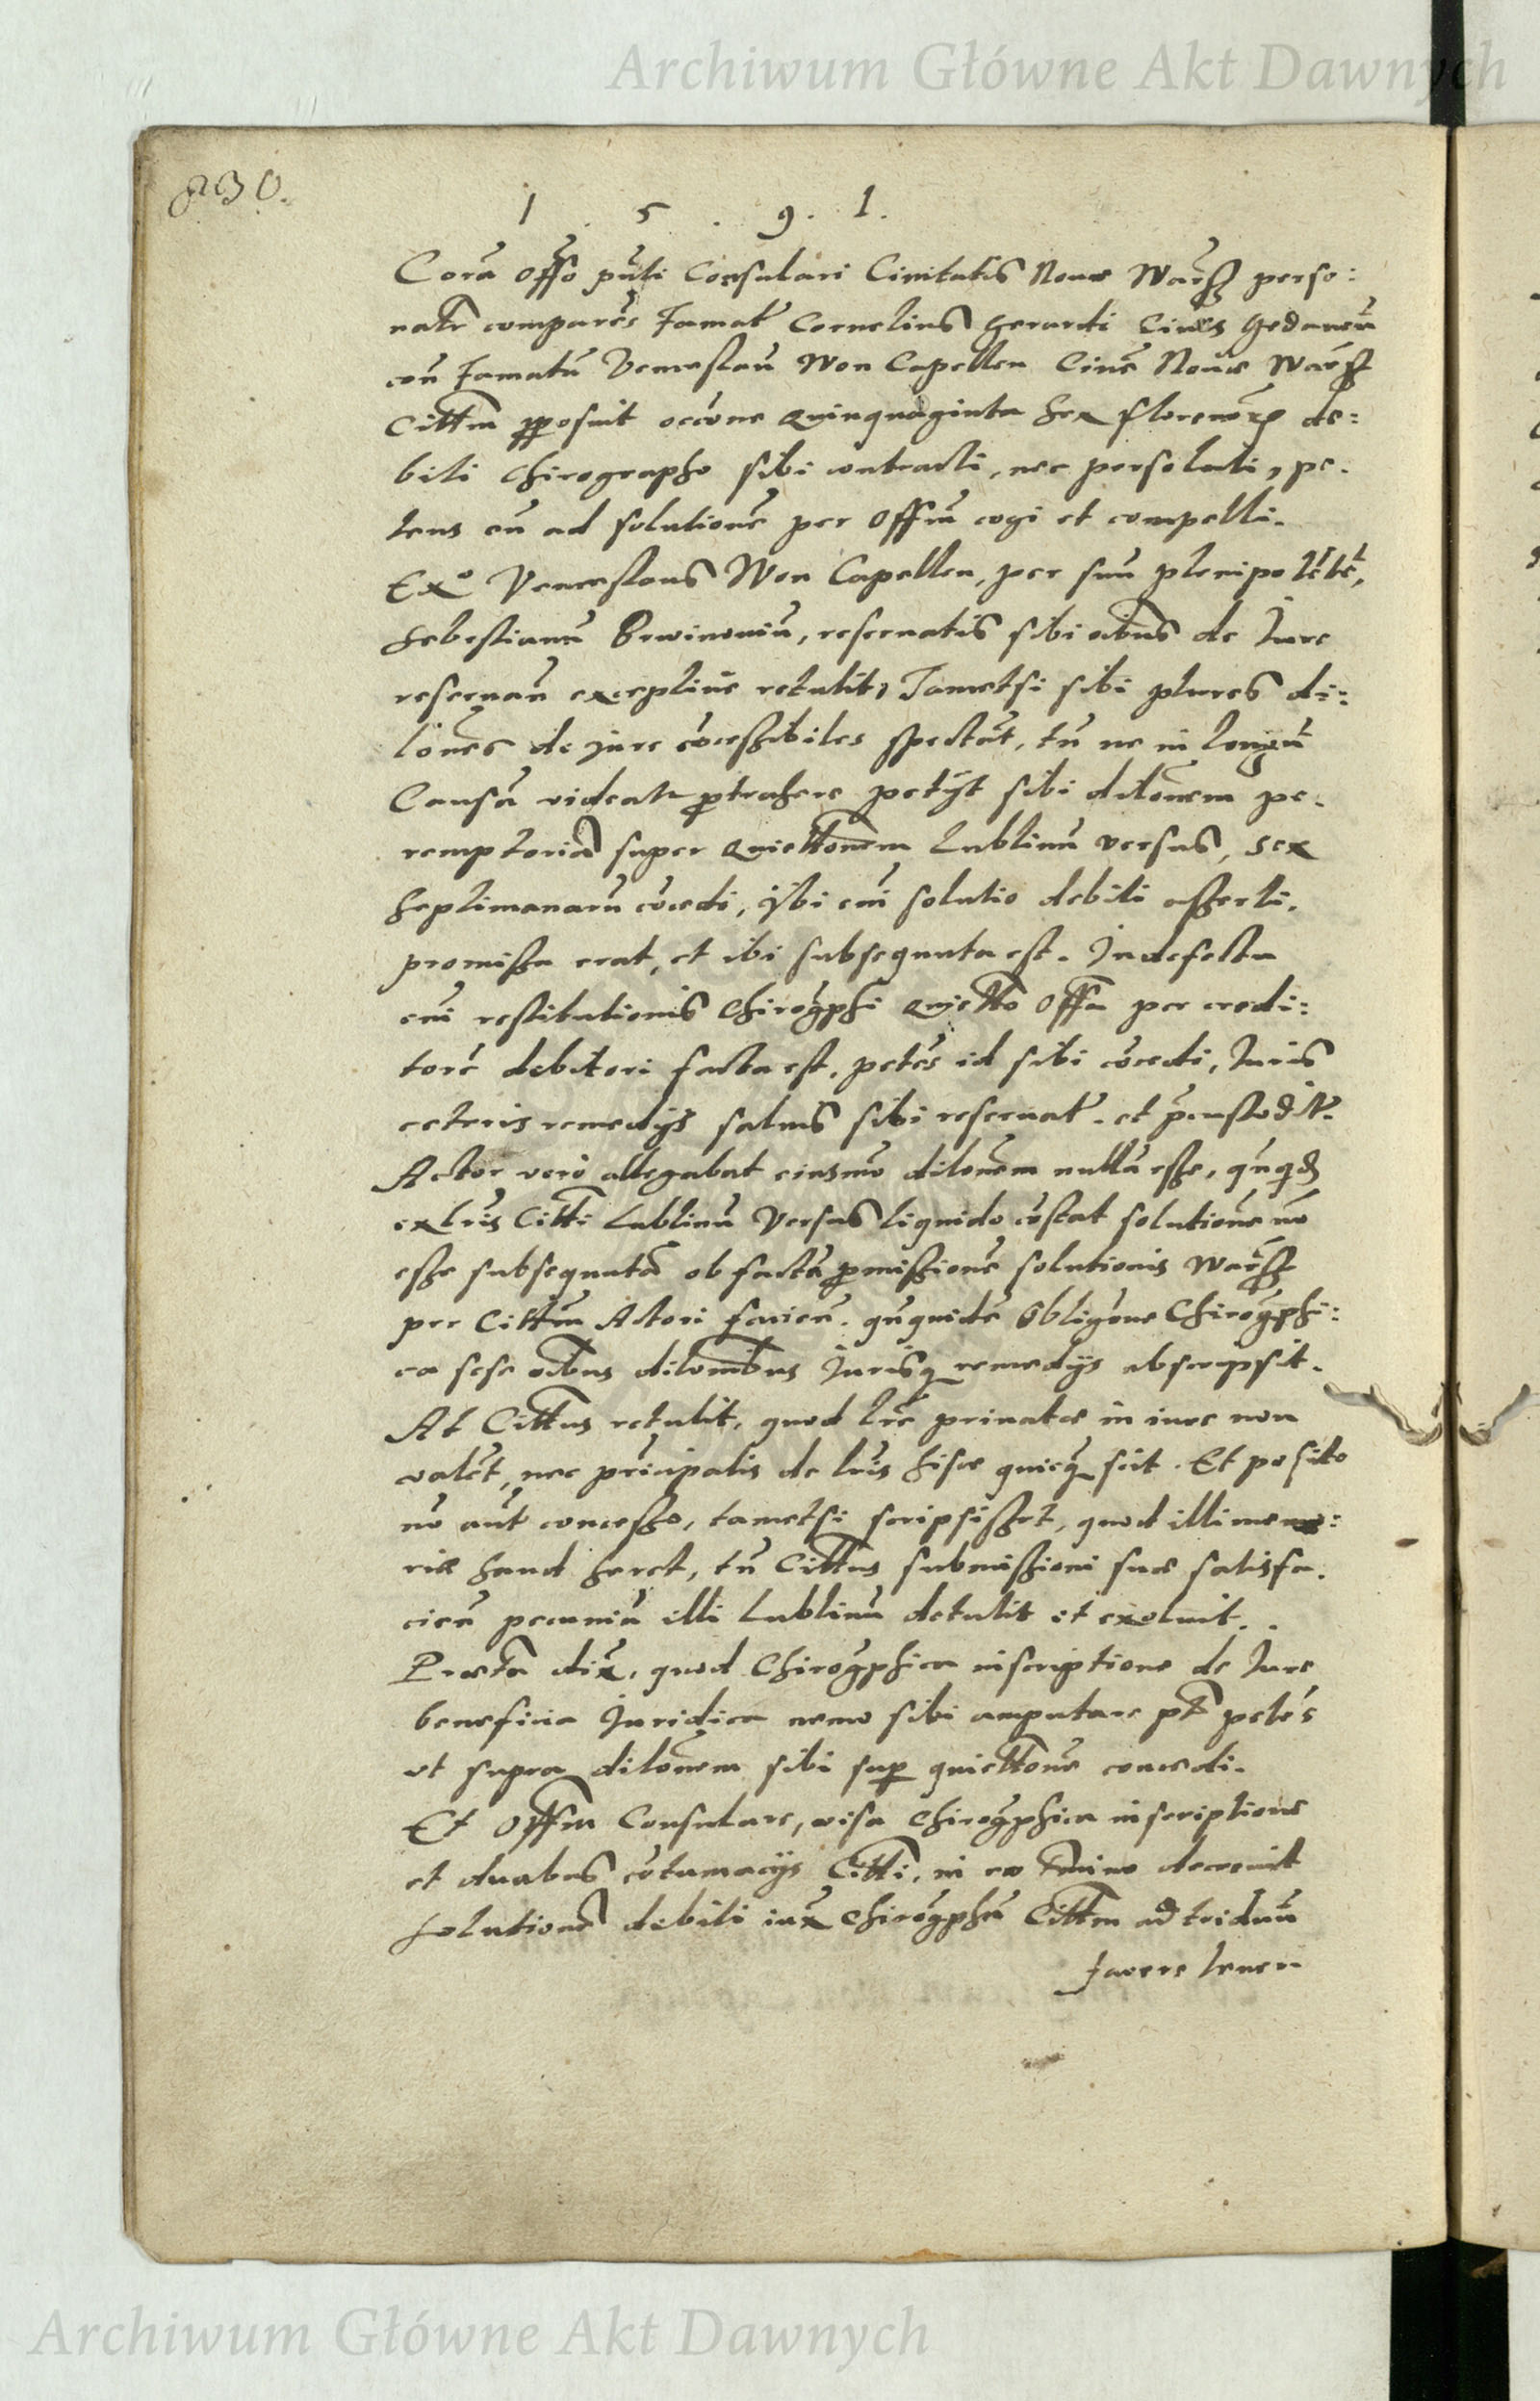 Archiwum Główne Akt Dawnych
830.
1 . 5 . 9 . 1.
Corā Offō pūti Consulari Ciuitatis Nouæ Warß perso:
natr comparēs Famat9 Cornelius Gerardi Ciuis Gedaneń
con Famatū Venceslaū Won Capellen Ciuē Nouæ Warß
Cittm proposuit occōne Quinquaginta sex florenorū de:
biti Chirographo sibi contracti, nec persoluti, pe.
tens eū ad solutionē per Offm cogi et compelli.
Exº Venceslaus Won Capellen, per suū plenipotētē,
Sebestianū Brwinoviū, reseruatis sibi oībus de Iure
reseruań exceptiōē retulit, Tametsi sibi plures di:
lōnes de jure cōcessibiles spectāt, tn̄ ne in longū
Causā videatr protrahere petijt sibi dilōnem pe.
remptoriā super Quiettōnem Lublinū versus, sex
septimanarū cōcedi, ibi em̄ solutio debiti asserti,
promissa erat, et ibi subsequuta est. In defectu
em̄ restitutionis Chirogphi Quiettō Offa per credi:
torē debitori facta est, petēs id sibi cōcedi, Iuris
ceteris remedijs saluis sibi reseruat9. et pcustodit9.
Actor verò allegabat eiusmō dilōnem nullā esse, qn̄quidē
ex lris Citti Lublinū versus liquido cōstat solutionē nō
esse subsequutā ob factā promissionē solutionis Warß
per Cittm Actori facień. qn̄quidē Obligōne Chirogphi:
ca sese oībus dilōnibus Iurisq remedijs abscripsit.
At Cittus retulit, quod lræ priuatæ in iure non
valēt, nec principalis de lris hisce quicq scit. Et posito
nō aūt concesso, tametsi scripsisset, quod illi memo:
riæ haud heret, tn̄ Cittus submissioni suæ satisfa.
cień pecuniā illi Lublinū detulit et exoluit.
Præta dix, quod Chirogphica inscriptione de Iure
beneficia Iuridica nemo sibi amputare pt petēs
ut supra dilōnem sibi sup quiettōne concedi.
Et Offm Consulare, visa Chirogphica inscriptione
et duabus cōtumacijs Citti, in eo tmino decreuit
solutionē debiti iux Chirogphū Cittm ad triduū
facere teneri
Archiwum Główne Akt Dawnych